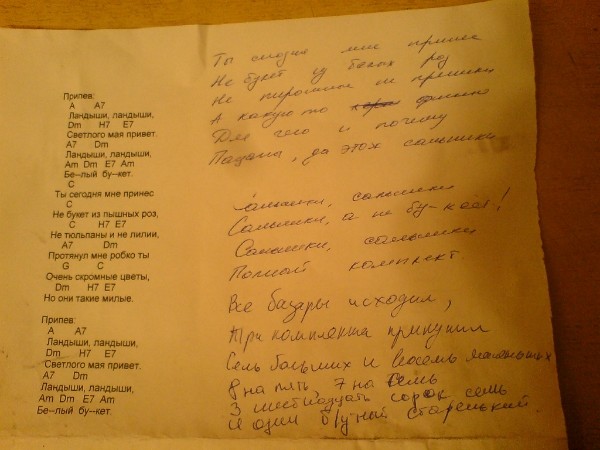 Припев:
A A7
Ландыши, ландыши,
Dm H7 E7
Светлого мая привет.
A7 Dm
Ландыши, ландыши,
Am Dm E7 Am
Бе--лый бу--кет.
C
Ты сегодня мне принес
C
Не букет из пышных роз,
C H7 E7
Не тюльпаны и не лилии,
A7 Dm
Протянул мне робко ты
G C
Очень скромные цветы,
Dm H7 E7
Но они такие милые.
Припев:
A A7
Ландыши, ландыши,
Dm H7 E7
Светлого мая привет.
A7 Dm
Ландыши, ландыши,
Am Dm E7 Am
Бе--лый бу--кет.
Ты сегодня мне принес
Не букет из белых роз
Не пирожные не пряники
А какую то
Для чего и почему
Пацаны, да этох сальники
альники, сальники
Сальники, а не бу-кет!
Сальники, сальники
Полный комплект.
Все базары исходил,
Три комплекта прикупил
Семь больших и восемь маленьких
8 на пять, 7 на семь
3 шестнадцать сорок семь
И один б/у ный старенький.